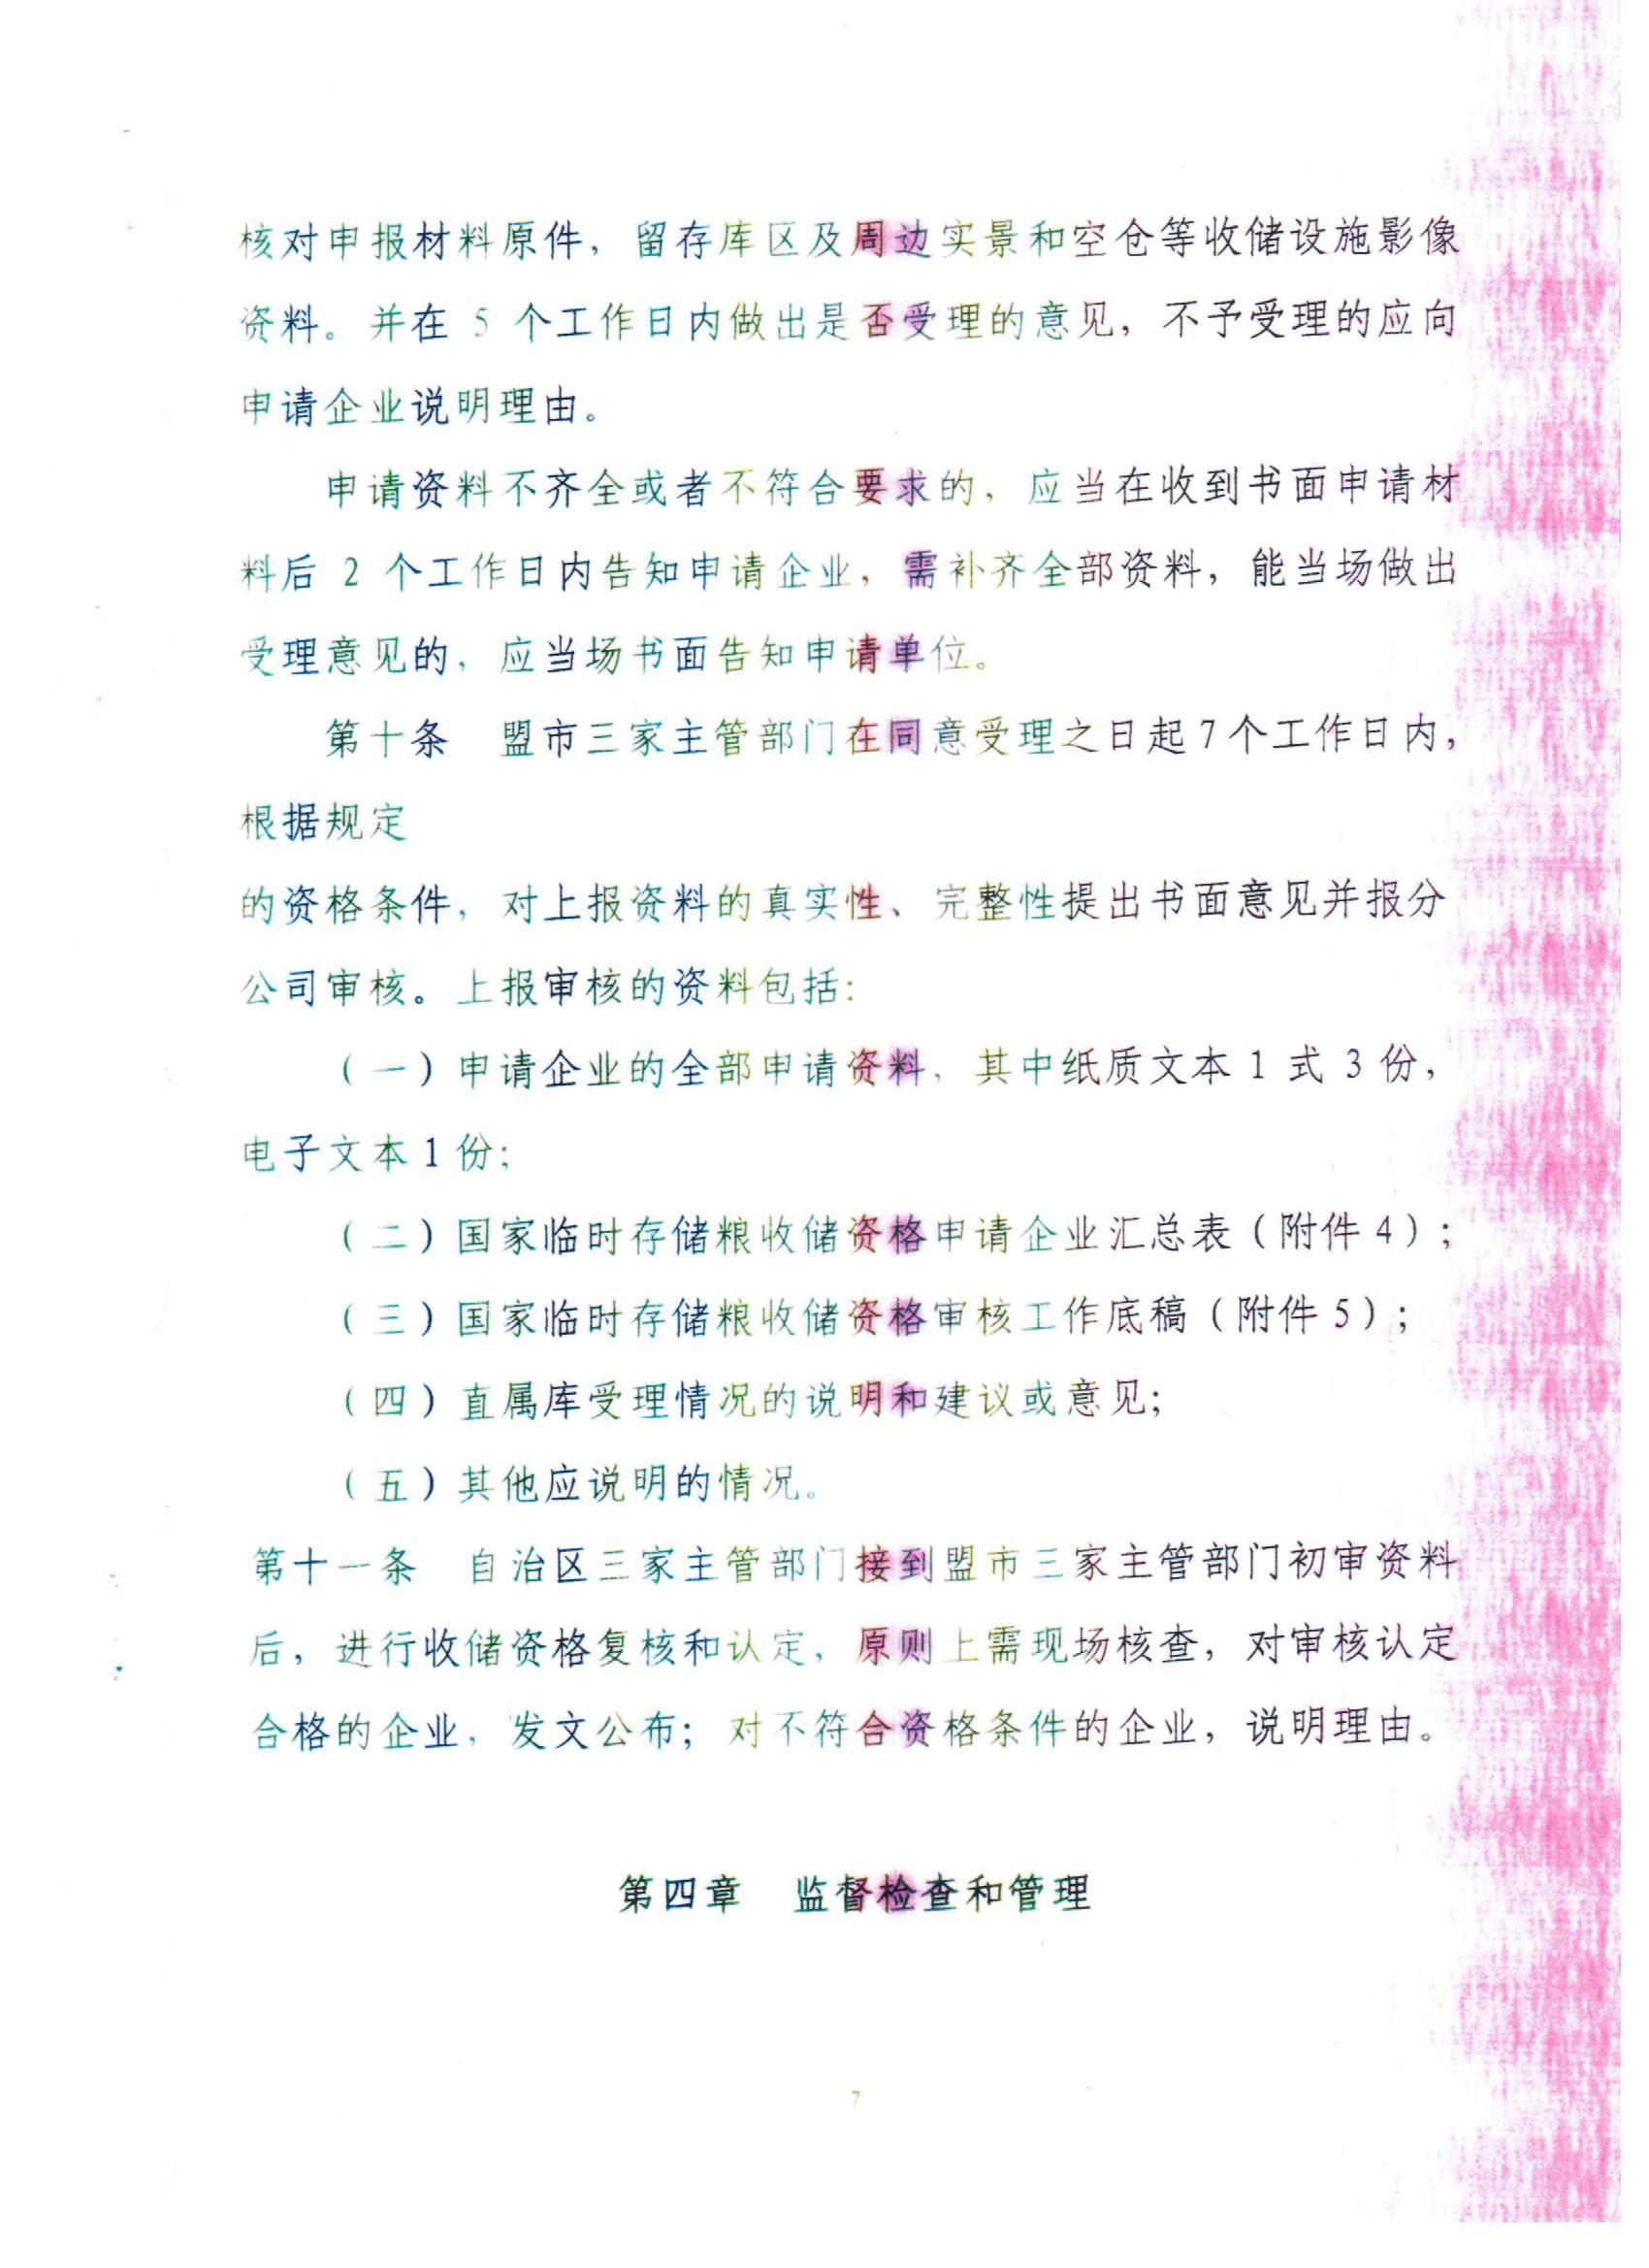 核对申报材料原件，留存库区及周边实景和空仓等收储设施影像
资料。并在 5 个工作日内做出是否受理的意见，不予受理的应向
申请企业说明理由。
申请资料不齐全或者不符合要求的，应当在收到书面申请材
料后 2 个工作日内告知申请企业，需补齐全部资料，能当场做出
受理意见的，应当场书面告知申请单位。
第十条　盟市三家主管部门在同意受理之日起7个工作日内，
根据规定
的资格条件，对上报资料的真实性、完整性提出书面意见并报分
公司审核。上报审核的资料包括：
（一）申请企业的全部申请资料，其中纸质文本 1 式 3 份，
电子文本 1 份；
（二）国家临时存储粮收储资格申请企业汇总表（附件 4）；
（三）国家临时存储粮收储资格审核工作底稿（附件 5）；
（四）直属库受理情况的说明和建议或意见；
（五）其他应说明的情况。
第十一条　自治区三家主管部门接到盟市三家主管部门初审资料
后，进行收储资格复核和认定，原则上需现场核查，对审核认定
合格的企业，发文公布；对不符合资格条件的企业，说明理由。
第四章　监督检查和管理
7